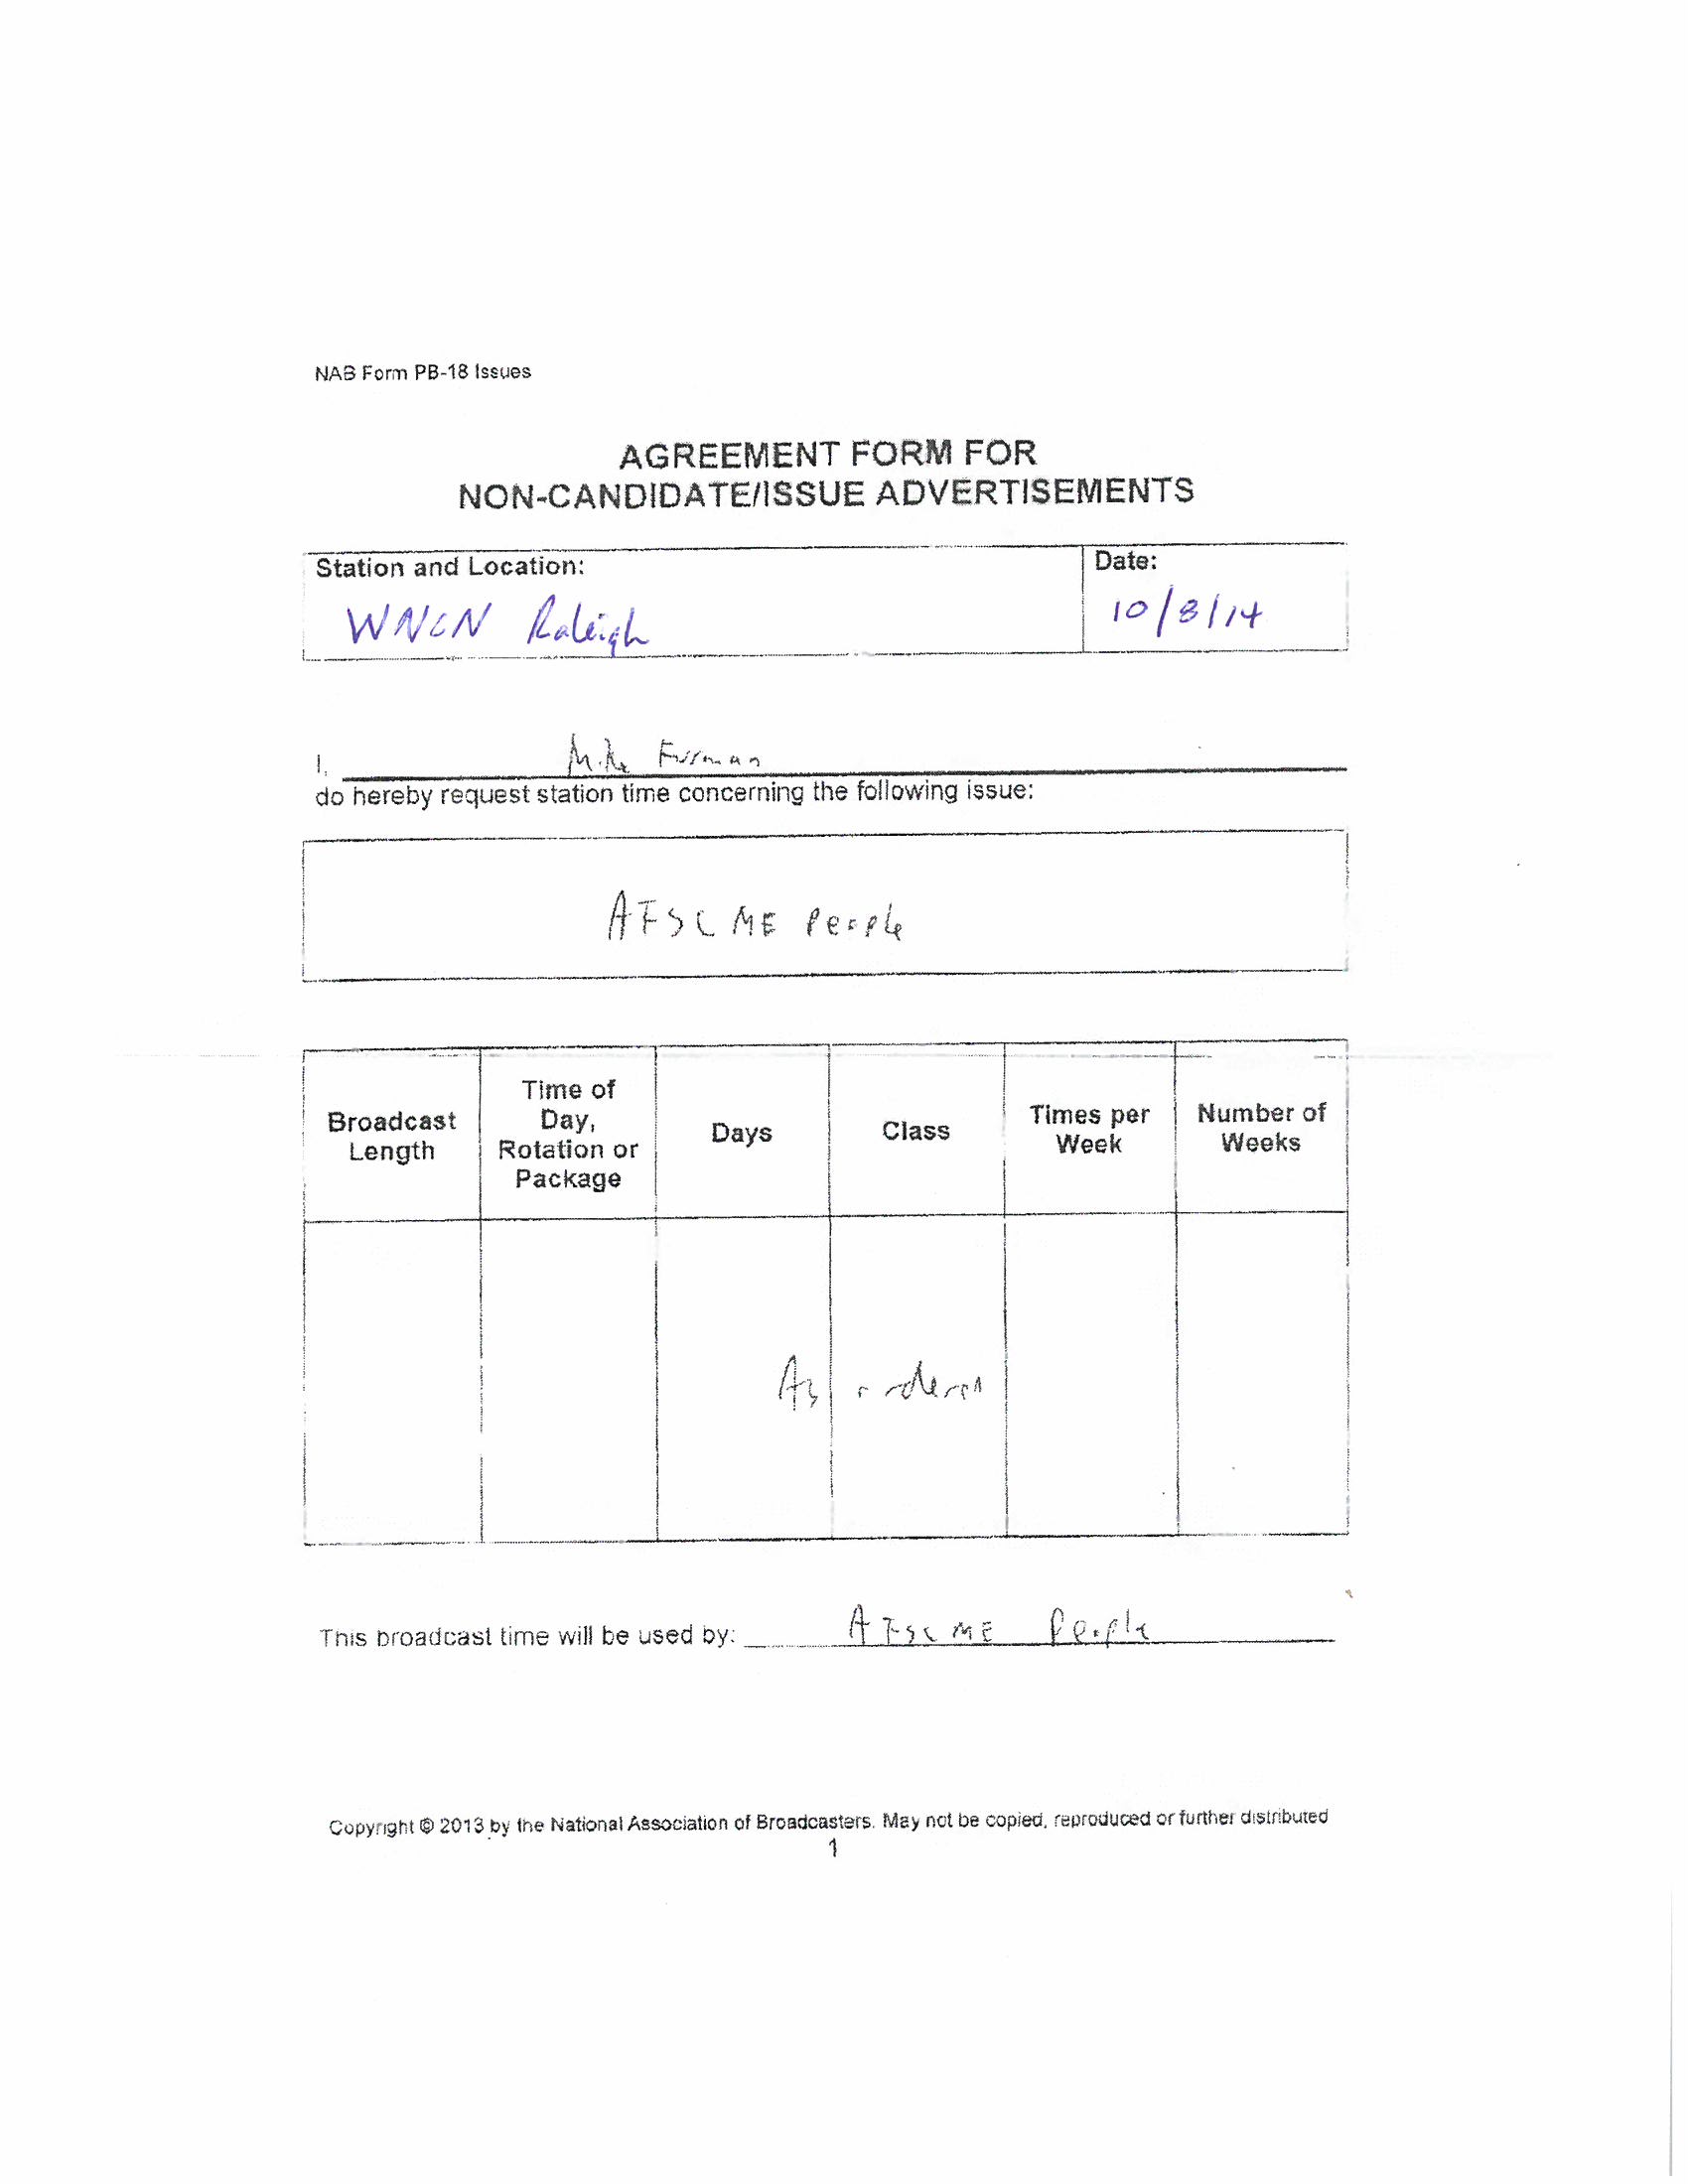 NAB Form PB-18 Issues
AGREEMENT FORM FOR
NON-CANDIDATE/ISSUE ADVERTISEMENTS
Station and Location:
Date:
WNCN Raleigh
10/8/14
I, Mike Furman
do hereby request station time concerning the following issue:
AFSCME People
Broadcast Length
Time of Day, Rotation or Package
Days
Class
Times per Week
Number of Weeks
As ordered
This broadcast time will be used by: AFSCME People
Copyright © 2013 by the National Association of Broadcasters. May not be copied, reproduced or further distributed
1